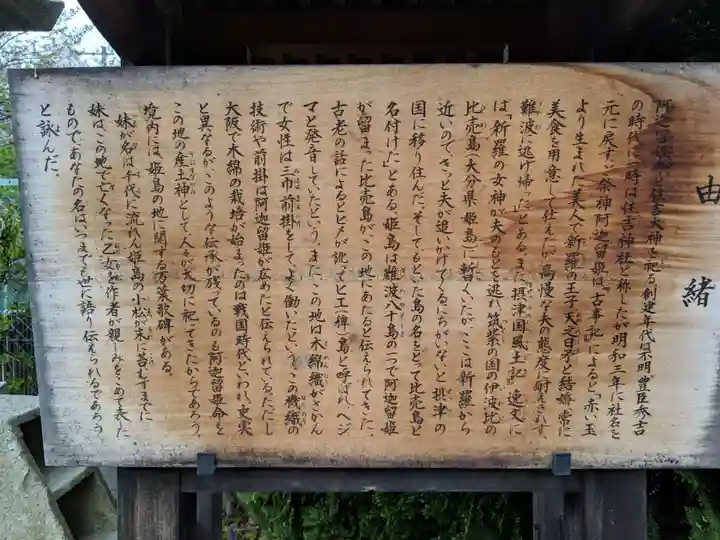 由緒
阿迦留姫命と住吉大神を祀る 創建年代不明 豊臣秀吉
の時代に一時は住吉神社と称したが明和三年に社名を
元に戻す。ご祭神阿迦留姫は、「古事記」によると「赤い玉
より生まれた美人で新羅の王子天之日矛と結婚、常に
美食を用意して仕えたが高慢な夫の態度に耐えきれず
難波に逃げ帰った」とある。また「摂津国風土記」逸文に
は「新羅の女神が夫のもとを逃れ筑紫の国の伊波比の
比売島(大分県姫島)に暫くいたが、ここは新羅から
近いので、きっと夫が追いかけてくるにちがいないと摂津の
国に移り住んだ。そしてもといた島の名をとって比売島と
名付けた」とある。姫島は難波八十島の一つで阿迦留姫
が留まった比売島が、この地にあたると伝えられてきた。
古老の話によるとヒメが訛ってヒエ(稗)島と呼ばれ、ヘジ
マと発音していたという。また、この地は木綿織がさかん
で女性は三巾前掛をしてよく働いたという。この機織の
技術や前掛は阿迦留姫が広めたと伝えられている。ただし
大阪で木綿の栽培が始まったのは戦国時代といわれ、史実
と異なるが、このような伝承が残っているのも阿迦留姫命を
この地の産土神として、人々が大切に祀ってきたからであろう。
境内には、姫島の地に関する万葉歌碑がある。
妹が名は千代に流れん姫島の小松が末に苔むすまでに
妹は、この地で亡くなった乙女を作者が親しみをこめて表した
ものであなたの名はいつまでも世に語り伝えられるであろう
と詠んだ。